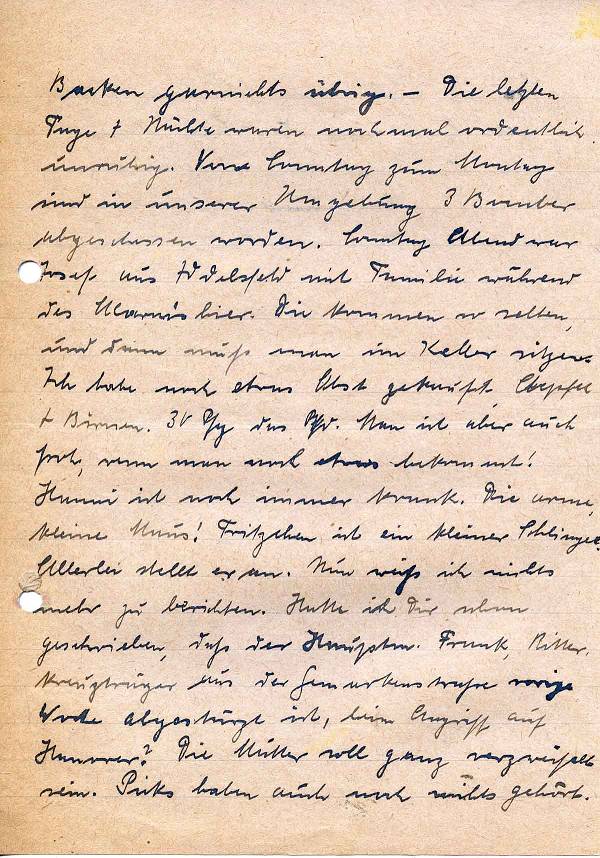 Backen garnichts übrig. – Die letzten
Tage + Nächte waren nochmal ordentlich
unruhig. Von Sonntag zum Montag
sind in unserer Umgebung 3 Bomber
abgeschossen worden. Sonntag Abend war
Josef aus Iddelsfeld mit Familie während
des Alarms hier. Die kommen so selten,
und dann muß man im Keller sitzen.
Ich habe noch etwas Obst gekauft, Aepfel
+ Birnen. 30 Pfg das Pfd. Man ist aber auch
froh, wenn man noch etwas bekommt!
Hanni ist noch immer krank. Die arme,
kleine Maus! Fritzchen ist ein kleiner Schlingel.
Allerlei stellt er an. Nun weiß ich nichts
mehr zu berichten. Hatte ich Dir schon
geschrieben, daß der Hauptm. Frank, Ritter-
kreuzträger aus der Gemarkenstraße vorige
Woche abgestürzt ist, beim Angriff auf
Hannover? Die Mutter soll ganz verzweifelt
sein. Picks haben auch noch nichts gehört.